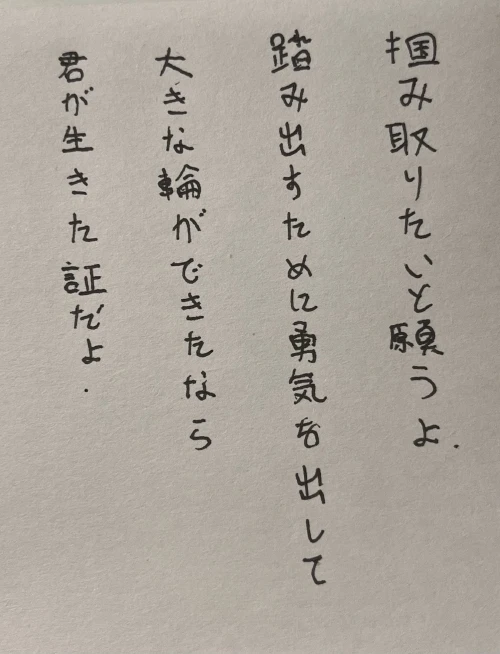 掴み取りたいと願うよ.
踏み出すために勇気を出して
大きな輪ができたなら
君が生きた証だよ.